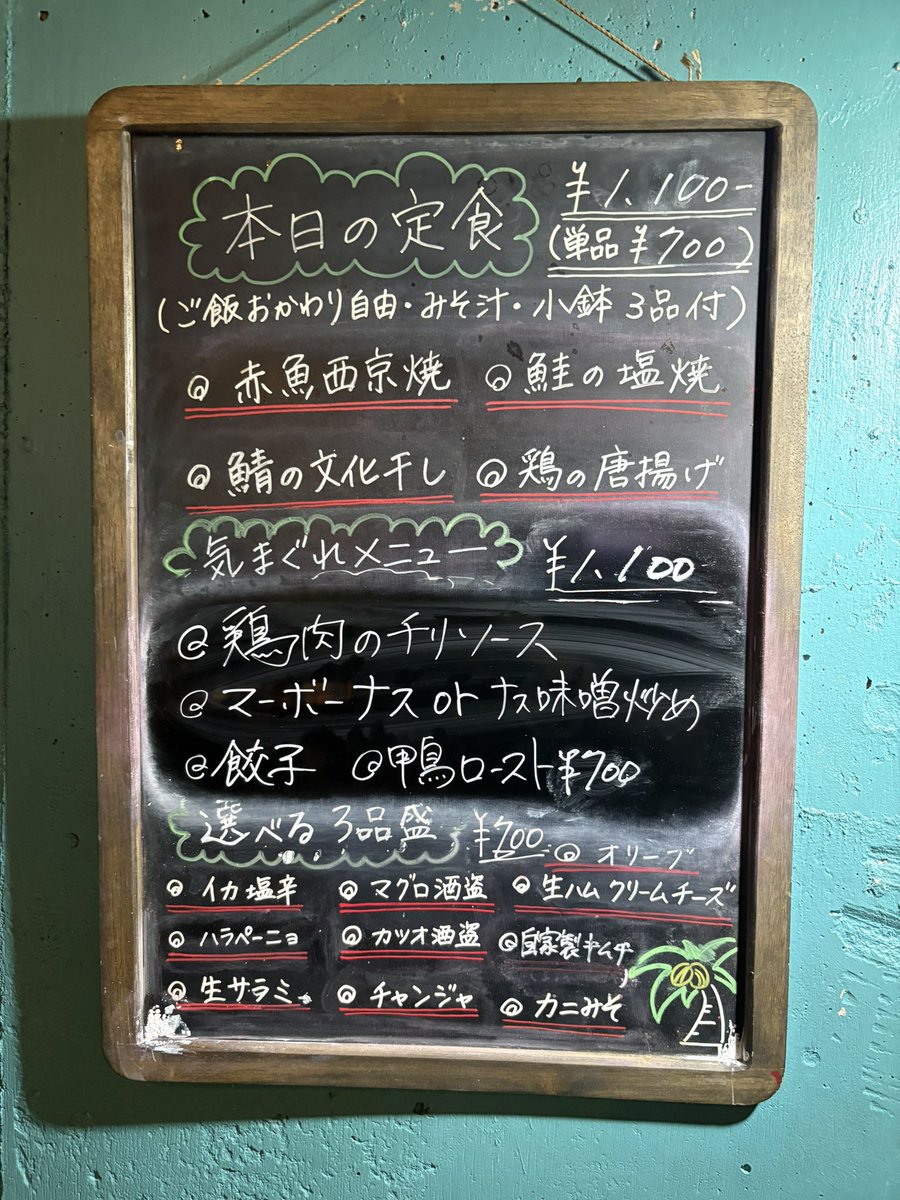 本日の定食 ¥1,100-
(単品¥700)
(ご飯おかわり自由・みそ汁・小鉢3品付)
◎ 赤魚西京焼 ◎ 鮭の塩焼
◎ 鯖の文化干し ◎ 鶏の唐揚げ
気まぐれメニュー ¥1,100-
@ 鶏肉のチリソース
@ マーボーナス or ナス味噌炒め
@ 餃子 @ 鴨ロースト¥700
選べる3品盛 ¥700
◎ オリーブ
◎ イカ塩辛 ◎ マグロ酒盗 ◎ 生ハムクリームチーズ
◎ ハラペーニョ ◎ カツオ酒盗 ◎ 自家製キムチ
◎ 生サラミ ◎ チャンジャ ◎ カニみそ